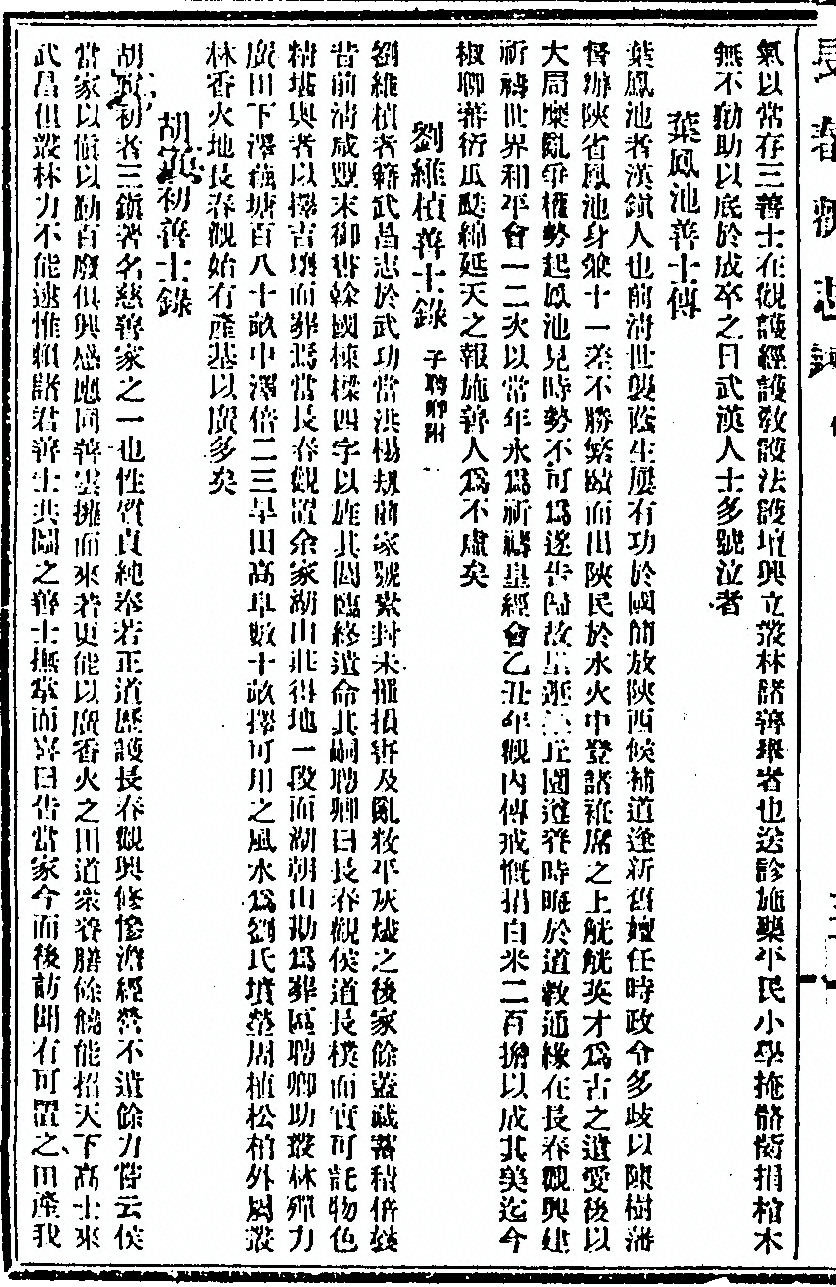 長春觀志
氣以常存三善士在觀護經護敎護法護壇興立叢林諸善舉者也送診施藥平民小學掩骼衛捐棺木
無不勷助以底於成卒之日武漢人士多號泣者
葉鳳池善士傳
葉鳳池者漢鎮人也前清世襲蔭生屢有功於國簡放陝西候補道逢新舊嬗任時政令多歧以陳樹藩
督辦陝省鳳池身兼十一差不勝繁賾而出陝民於水火中登諸袵席之上觥觥英才為古之遺愛後以
大局糜亂爭權勢起鳳池見時勢不可為遂告歸故里逝丘園遵養時晦於道敎通緣在長春觀興建
祈禱世界和平會一二次以常年永為祈禱皇經會乙丑年觀內傳戒慨捐白米二百擔以成其美迄今
椒聊蕃衍瓜瓞綿延天之報施善人為不虛矣
劉維楨善士錄 子聘卿附
劉維楨者籍武昌志於武功當洪楊刼前家號素封未罹損害及亂敉平灰燼之後家餘蓋藏蓄積倍
昔前清咸豐末御書榦國棟樑四字以旌其閭臨終遺命其嗣聘卿曰長春觀侯道長樸而實可託物色
精堪輿者以擇吉壤而葬焉當長春觀置余家湖山莊得地一段而湖朝山勘為葬區聘卿助叢林殫力
廣田下澤藕塘百八十畝中澤倍二三旱田高阜數十畝擇可用之風水為劉氏墳塋周植松柏外屬叢
林香火地長春觀始有產基以廣多矣
胡初善士錄
胡初者三鎮著名慈善家之一也性質貞純奉若正道歷護長春觀興修慘澹經營不遺餘力陡云侯
當家以愼以勤百廢俱興感應同善雲擁而來若更能以廣香火之田道衆養膳餘饒能招天下高士來
武昌但叢林力不能逮惟賴諸君善士共圖之善士撫掌而喜曰告當家今而後訪聞有可置之田產我